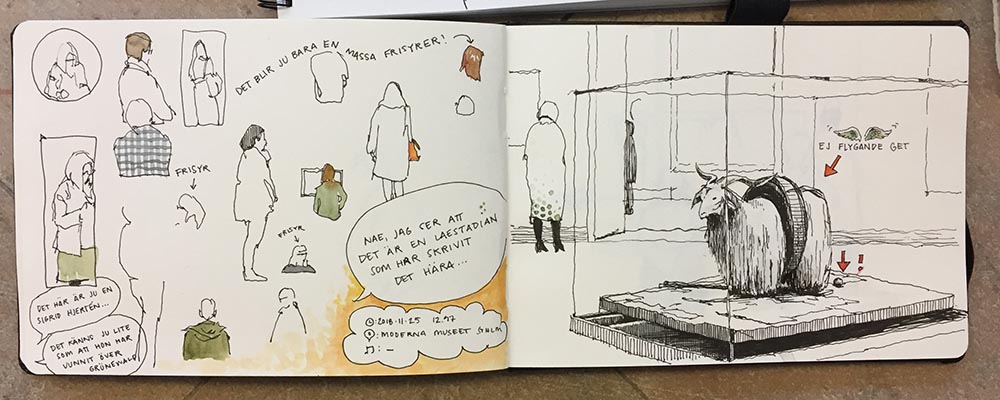 DET BLIR JU BARA EN MASSA FRISYRER!
FRISYR
FRISYR
NAE, JAG SER ATT
DET ÄR EN LAESTADIAN
SOM HAR SKRIVIT
DET HÄRA...
DET HÄR ÄR JU EN
SIGRID HJERTÉN...
DET KÄNNS JU LITE
SOM ATT HON HAR
VUNNIT ÖVER
GRÜNEWALD
: 2018.11.25 12.97
: MODERNA MUSEET STHLM
: —
EJ FLYGANDE GET
!